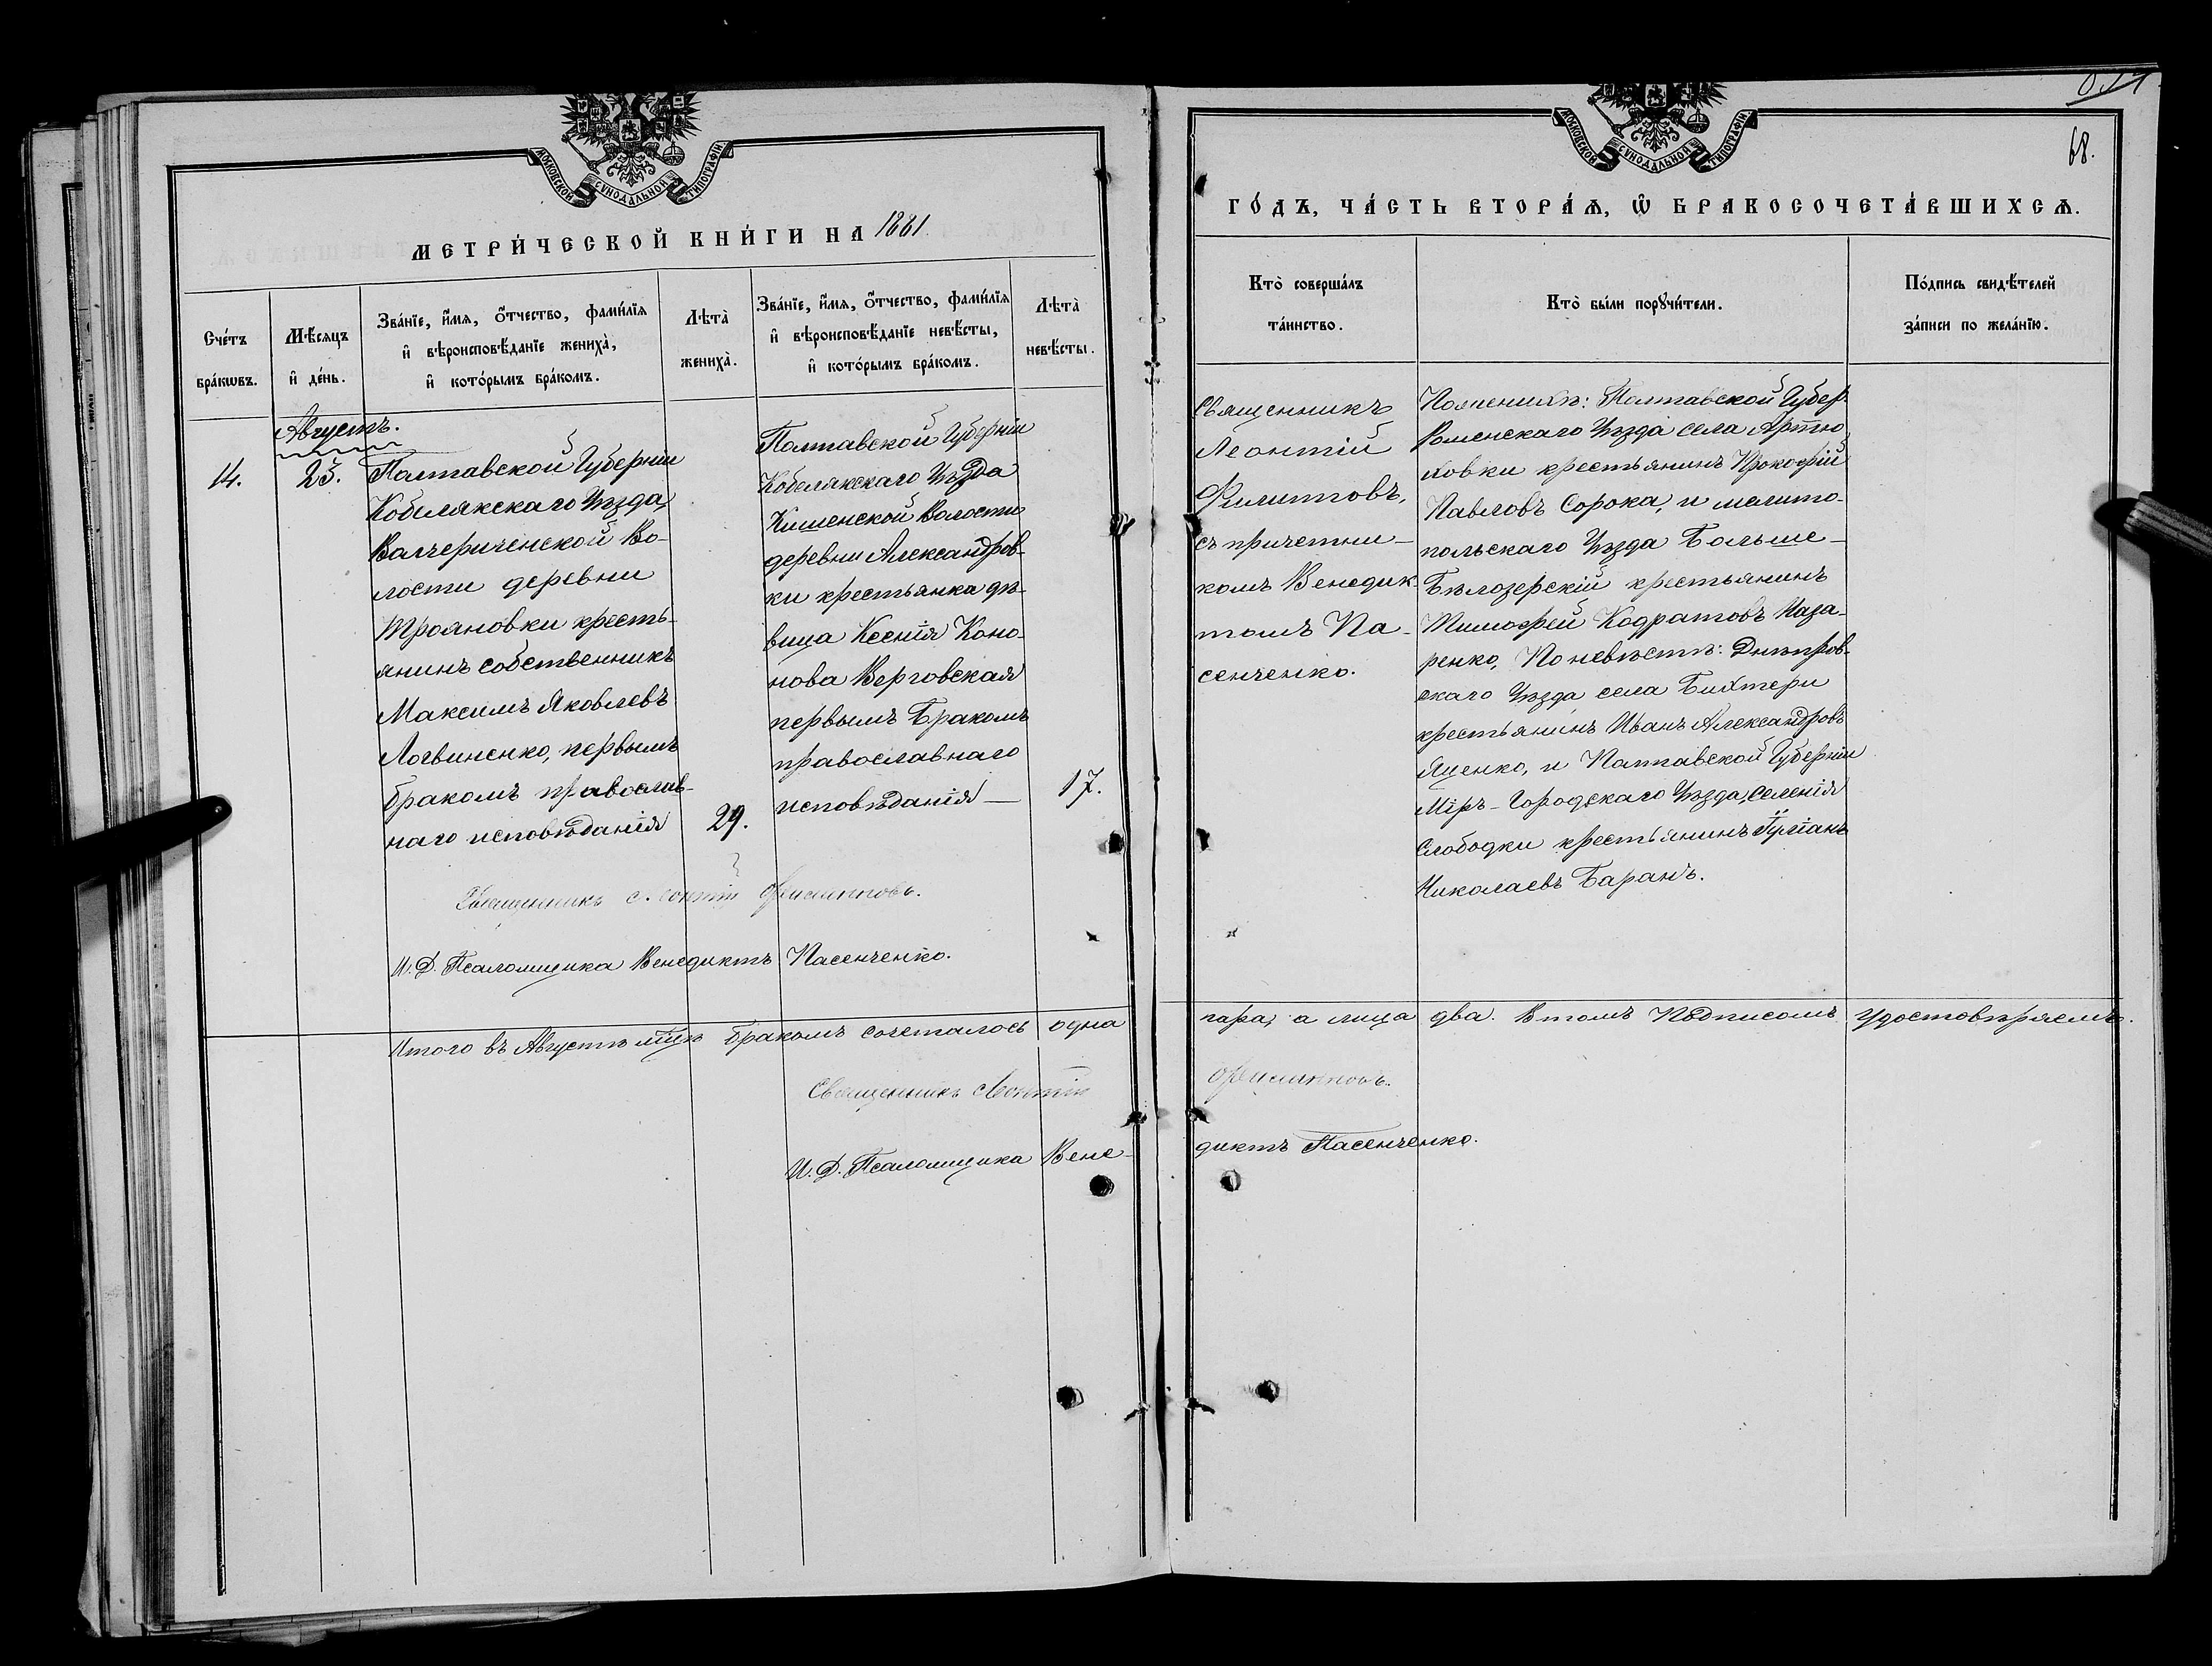 МОСКОВСКОЙ СѴНОДАЛЬНОЙ ТИПОГРАФІИ
МЕТРИ́ЧЕСКОЙ КНИ́ГИ НА 1881
Сче́тъ бра́кѡвъ.
Мѣ́сяцъ и҆ де́нь.
Зва́нїе, и҆́мя, ѻ҆́тчество, фами́лїя
и҆ вѣроисповѣ́данїе жениха̀,
и҆ кото́рымъ бра́комъ.
Лѣта̀ жениха̀.
Зва́нїе, и҆́мя, ѻ҆́тчество, фами́лїя
и҆ вѣроисповѣ́данїе невѣ́сты,
и҆ кото́рымъ бра́комъ.
Лѣта̀ невѣ́сты.
Августъ.
14.
23.
Полтавской Губерніи
Кобелякскаго Уѣзда,
Волчериченской Во-
лости деревни
Трояновки кресть-
янинъ собственникъ
Максимъ Яковлевъ
Логвиненко, первымъ
бракомъ православ-
наго исповѣданія
29.
Полтавской Губерніи
Кобелякскаго Уѣзда
Кишенской Волости
деревни Александров-
ки крестьянка дѣ-
вица Ксенія Коно-
нова Верговская
первымъ бракомъ
православнаго
исповѣданія —
17.
Священникъ Леонтій Филипповъ.
И. Д. Псаломщика Венедиктъ Пасенченко.
Итого въ Августѣ мцѣ бракомъ сочеталось одна
Священникъ Леонтій
И. Д. Псаломщика Вене-
68.
МОСКОВСКОЙ СѴНОДАЛЬНОЙ ТИПОГРАФІИ
ГО́ДЪ, ЧА́СТЬ ВТОРА́Ѧ, Ѡ҆ БРАКОСОЧЕТА́ВШИХСѦ.
Кто̀ соверша́лъ
та́инство.
Кто̀ бы́ли порꙋчи́тели.
По́дпись свидѣ́телей
за́писи по жела́нїю.
Священникъ
Леонтій
Филипповъ,
съ причетни-
комъ Венедик-
томъ Па-
сенченко.
По женихѣ: Полтавской Губер.
Роменскаго Уѣзда села Артю
ховки крестьянинъ Прокофій
Павловъ Сорока, и мелито-
польскаго Уѣзда Больше-
Бѣлозерскій крестьянинъ
Тимофей Кодратовъ Наза-
ренко, По невѣстѣ: Днѣпров-
скаго Уѣзда села Бихтери
крестьянинъ Иванъ Александровъ
Яценко, и Полтавской Губерніи
Міръ-Городскаго Уѣзда, селенія
Слободки крестьянинъ
Николаевъ Баранъ.
пара, а лица два. В томъ Подписомъ удостовѣряемъ.
Филипповъ.
диктъ Пасенченко.